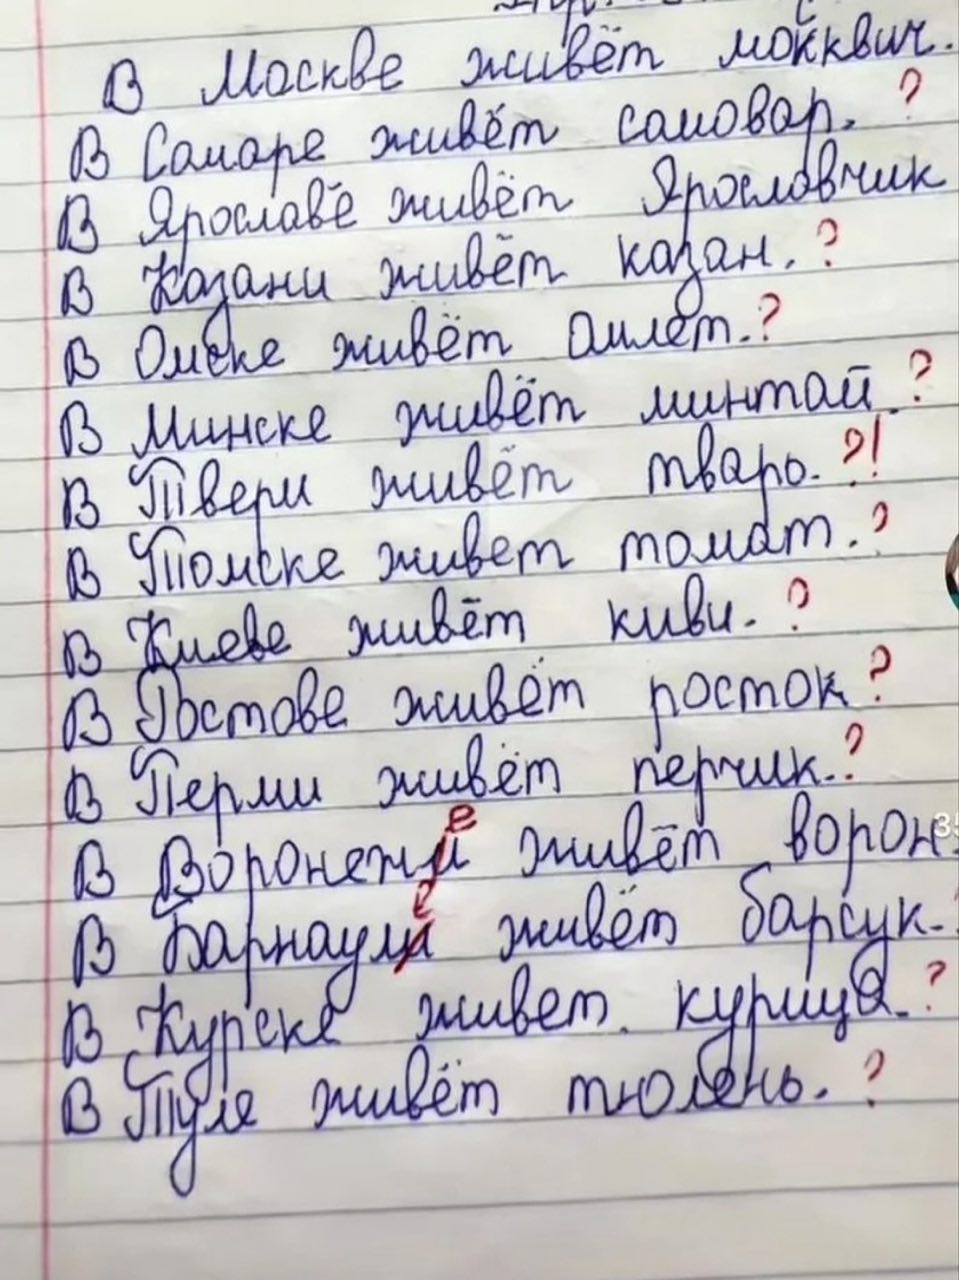 В Москве живёт мокквич.
с
В Самаре живёт самовар. ?
В Ярославе живёт Ярославчик
В Казани живёт казан. ?
В Омске живёт Омлет. ?
В Минске живёт минтай. ?
В Твери живёт тварь. ?!
В Томске живет томат. ?
В Киеве живёт киви. ?
В Ростове живёт росток ?
В Перми живёт перчик. ?
е
В Воронежи живёт ворон.
е
В Барнаули живёт барсук.
В Курске живет курица. ?
В Туле живёт тюлень. ?